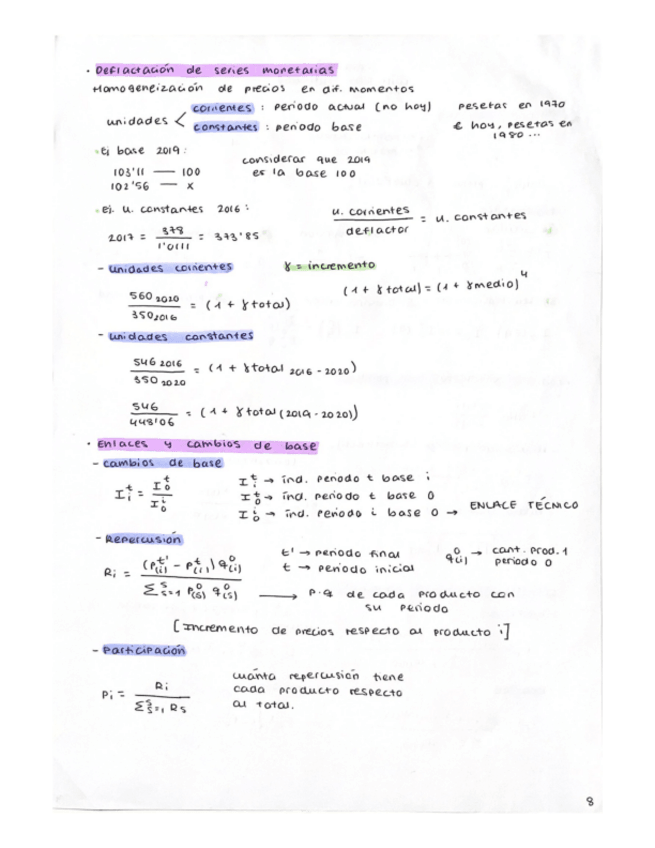 · Deflactación de series monetarias
Homogeneización de precios en dif. momentos
unidades < corrientes : periodo actual (no hoy) pesetas en 1970
constantes : periodo base € hoy, pesetas en 1980 ...
· Ej base 2019 : considerar que 2019
103'11 — 100 es la base 100
102'56 — x
· ej. u. constantes 2016 : u. corrientes / deflactor = u. constantes
2017 = 378 / 1'0111 = 373'85
- unidades corrientes γ = incremento
560 2020 / 350 2016 = (1 + γ total) (1 + γ total) = (1 + γ medio)^4
- unidades constantes
546 2016 / 350 2020 = (1 + γ total 2016 - 2020)
546 / 448'06 = (1 + γ total (2019 - 2020))
· Enlaces y cambios de base
- cambios de base
I_i^t = I_0^t / I_0^i I_i^t → índ. periodo t base i
I_0^t → índ. periodo t base 0
I_0^i → índ. periodo i base 0 → ENLACE TÉCNICO
- Repercusión t' → periodo final q_(i)^0 → cant. prod. 1
t → periodo inicial periodo 0
R_i = (P_(i)^t' - P_(i)^t) q_(i)^0 / Σ_{s=1}^S P_(s)^0 q_(s)^0 → P·q de cada producto con
su periodo
[Incremento de precios respecto al producto i]
- Participación
P_i = R_i / Σ_{s=1}^S R_s cuánta repercusión tiene
cada producto respecto
al total.
8